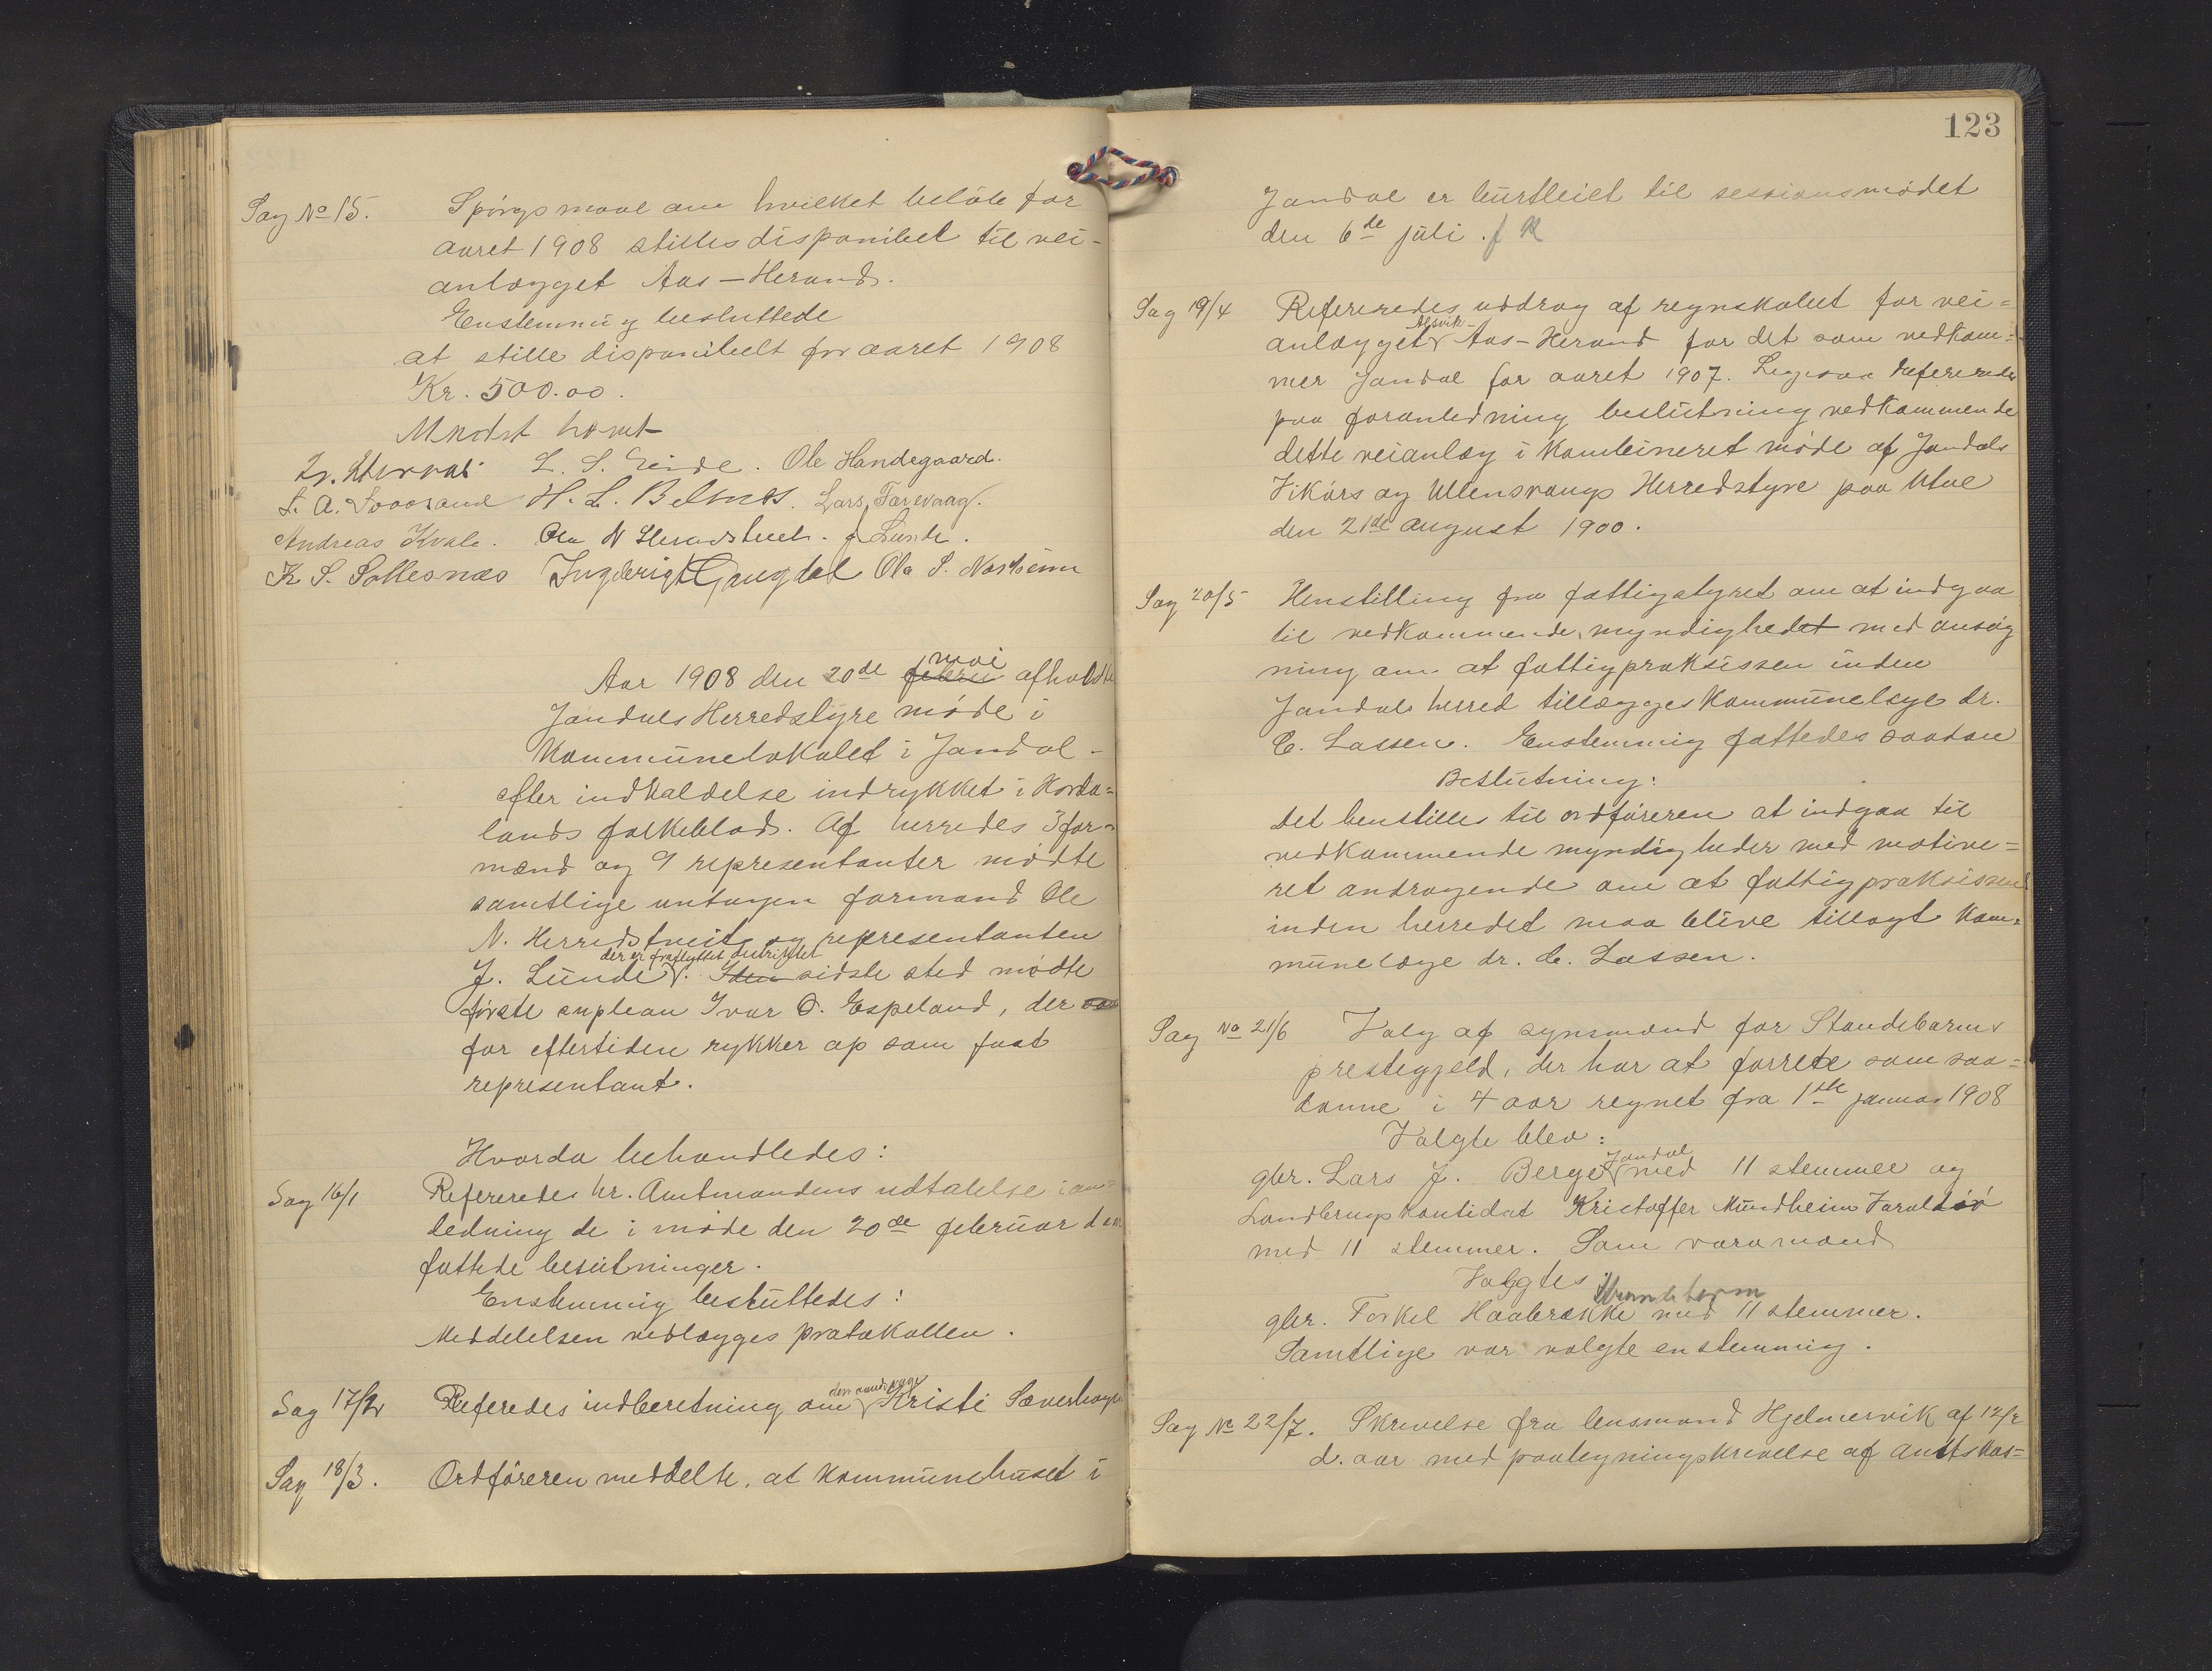 Sag No 15. Spörgsmaal om hvilket beløb for
aaret 1908 stilles disponibel til vei-
anlægget Aas-Herand.
Enstemmig besluttede
at stille disponibelt for aaret 1908
Kr. 500.00.
Mødet hævet
L. S. Eide. Ole Handegaard.
H. L. Belsnes. Lars Torevaag.
Andreas Kvale. Ola N Herredstveit. J Lunde.
K S. Sollesnæs Ingebrigt Gaugdal Ola S. Næsheim
Aar 1908 den 20de febru mai afholdte
Jondals Herredstyre möde i
Kommunelokalet i Jondal-
efter indkaldelse indrykket i Horda=
lands folkeblad. Af herredes 3 for-
mænd og 9 representanter mødte
samtlige untagen formand Ole
N. Herredstveit og representanten
der er fraflyttet distriktet
J. Lunde. I den sidste sted mødte
første suplean Ivar O. Espeland, der
for eftertiden rykker op som fast
representant.
Hvorda behandledes:
Sag 16/1 Refereredes hr. Amtmandens udtalelse i an=
ledning de i møde den 20de februar d aar
fattede beslutninger.
Enstemmig besluttedes:
Meddelelsen vedlægges protokollen.
Sag 17/2 Referedes indberetning om den sindssyge Kristi Sæverhagen
Sag 18/3. Ordføreren meddelte, at kommunehuset i
123
Jondal er bortleiet til sessionsmödet
den 6te juli.
Sag 19/4 Refereredes uddrag af regnskabet for vei=
anlægget Alsvik- Aas-Herand for det som vedkom=
mer Jondal for aaret 1907. Ligesaa refereredes
paa foranledning beslutning vedkommende
dette veianlæg i kombineret møde af Jondals
Vikörs og Ullensvangs Herredstyre paa Utne
den 21de august 1900.
Sag 20/5 Henstilling fra fattigstyret om at indgaa
til vedkommende myndighedet med ansög
ning om at fattigpraksissen inden
Jondals herred tillægges Kommunelæge dr.
C. Lassen. Enstemmig fattedes saadan
Beslutning:
Det henstilles til ordføreren at indgaa til
vedkommende myndigheder med motive=
ret andragende om at fattigpraksissen
inden herredet maa blive tillagt Kom=
munelæge dr. C. Lassen.
Sag No 21/6 Valg af synsmænd for Strandebarms
prestegjeld, der har at forrette som saa=
danne i 4 aar regnet fra 1ste januar 1908
Valgte blev:
gbr. Lars J. Berge Jondal med 11 stemmer og
Landbrugskantidat Kristoffer Mundheim Varaldsö
med 11 stemmer. Som varamand
Valgtes:
gbr. Torkel Haabrække Strandebarm med 11 stemmer.
Samtlige var valgte enstemmig.
Sag No 22/7. Skrivelse fra lensmand Hjelmervik af 12/2
d. aar med paategningskrivelse af Amtskas=